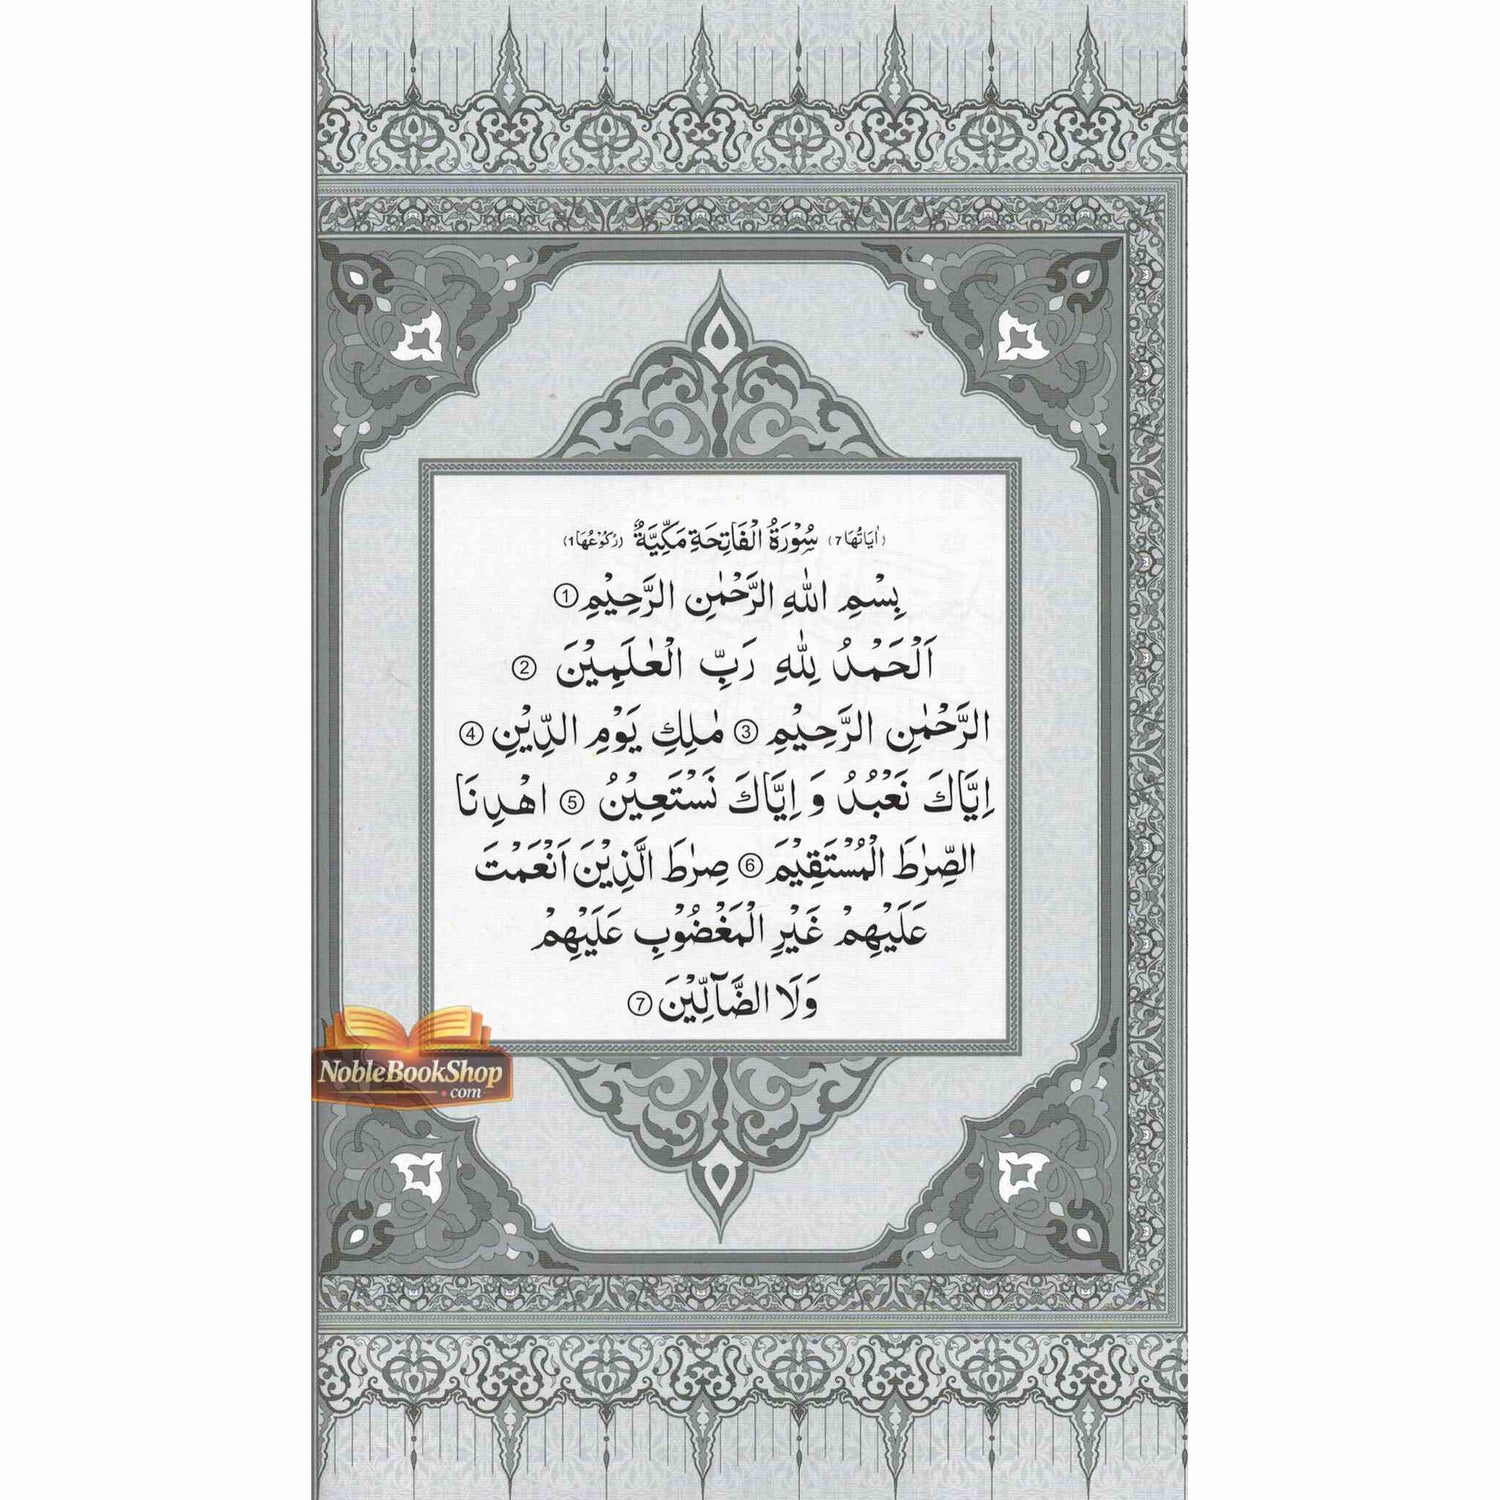 (اٰيَاتُهَا 7) سُوْرَةُ الْفَاتِحَةِ مَكِّيَّةٌ (رُكُوْعُهَا 1)
بِسْمِ اللّٰهِ الرَّحْمٰنِ الرَّحِيْمِ ①
اَلْحَمْدُ لِلّٰهِ رَبِّ الْعٰلَمِيْنَ ②
الرَّحْمٰنِ الرَّحِيْمِ ③ مٰلِكِ يَوْمِ الدِّيْنِ ④
اِيَّاكَ نَعْبُدُ وَ اِيَّاكَ نَسْتَعِيْنُ ⑤ اهْدِنَا
الصِّرٰطَ الْمُسْتَقِيْمَ ⑥ صِرٰطَ الَّذِيْنَ اَنْعَمْتَ
عَلَيْهِمْ غَيْرِ الْمَغْضُوْبِ عَلَيْهِمْ
وَلَا الضَّآلِّيْنَ ⑦
NobleBookShop
.com